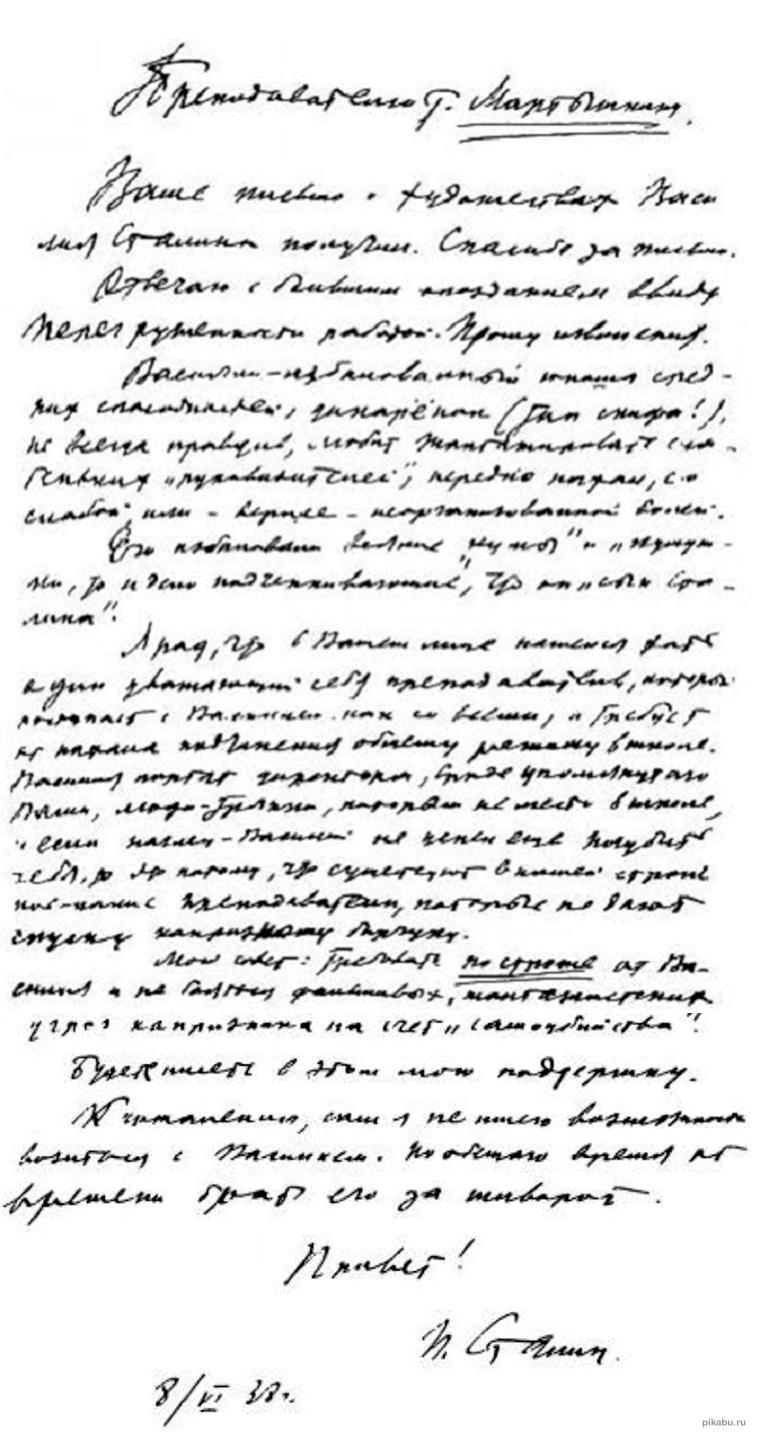 Преподавателю т. Мартышину.
Ваше письмо о художествах Васи
лия Сталина получил. Спасибо за письмо.
Отвечаю с большим опозданием ввиду
перегруженности работой. Прошу извинения.
Василий – избалованный юноша сред-
них способностей, дикарёнок (тип скифа!),
не всегда правдив, любит шантажировать сла-
беньких „руководителей", нередко нахал, со
слабой или – вернее – неорганизованной волей.
Его избаловали всякие „кумы" и „кумуш-
ки, то и дело подчеркивающие", что он „сын Ста-
лина".
Я рад, что в Вашем лице нашелся хоть
один уважающий себя преподаватель, который
поступает с Василием как со всеми, и требует
от нахала подчинения общему режиму в школе.
Василия портят директора, вроде упомянутого
Вами, люди-тряпки, которым не место в школе,
и если наглец-Василий не успел еще погубить
себя, то это потому, что существуют в нашей стране
кое-какие преподаватели, которые не дают
спуску капризному барчуку.
Мой совет: требовать построже от Ва-
силия и не бояться фальшивых, шантажистских
угроз капризника на счет „самоубийства".
Будете иметь в этом мою поддержку.
К сожалению, сам я не имею возможности
возиться с Василием. Но обещаю время от
времени брать его за шиворот.
Привет!
И. Сталин.
8/VI 38г.
pikabu.ru